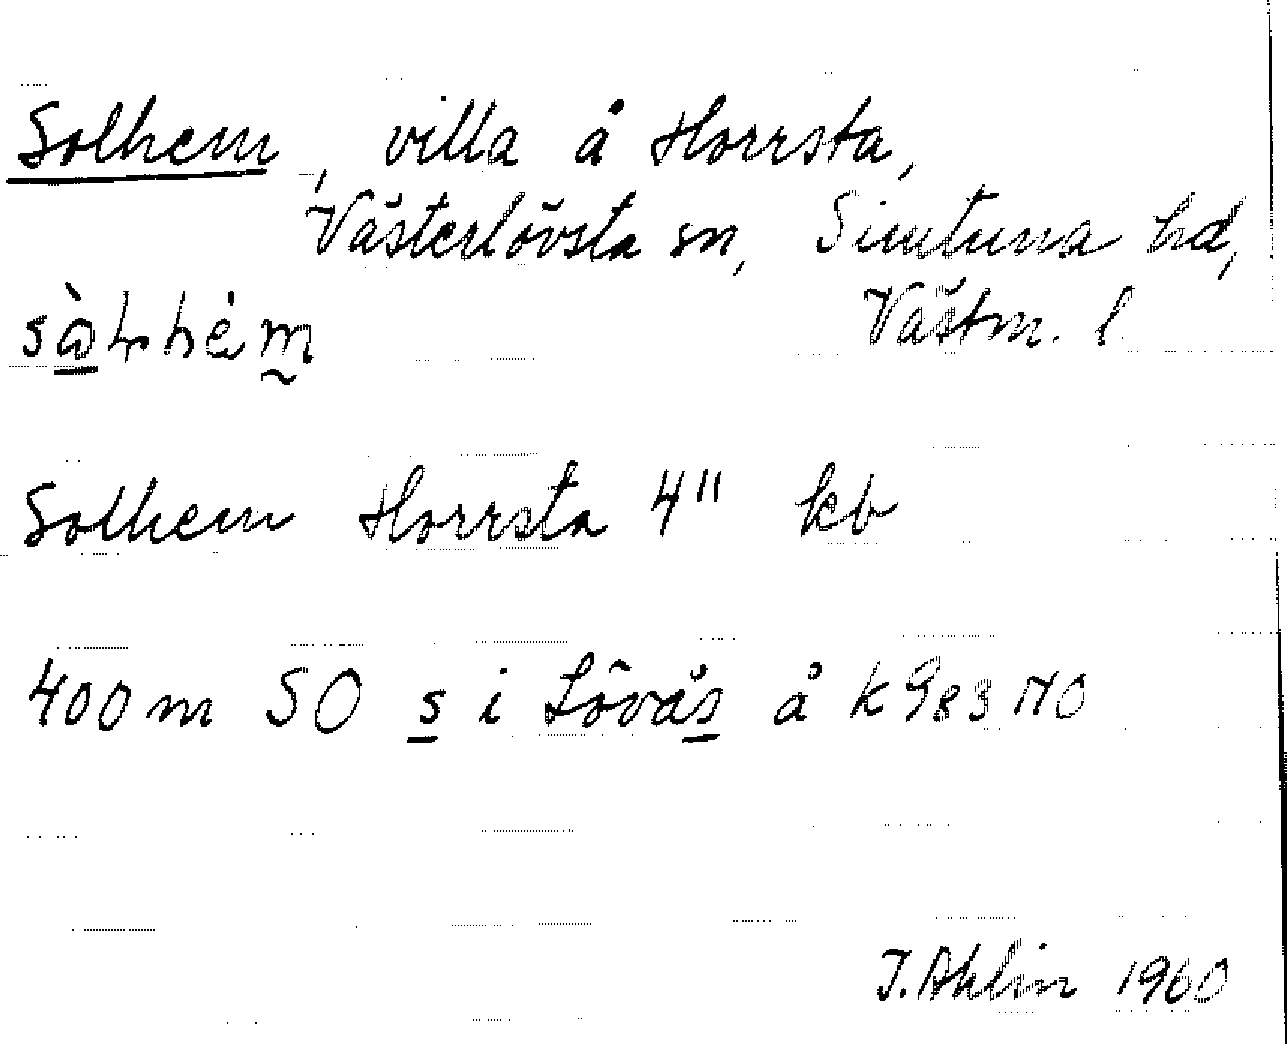 Solhem, villa å Horrsta,
Västerlövsta sn, Simtuna hd,
Västm. l.
Solhem Horrsta 4" kb
400 m SO s i Lövås å k 983 NO
I. Ahlin 1960